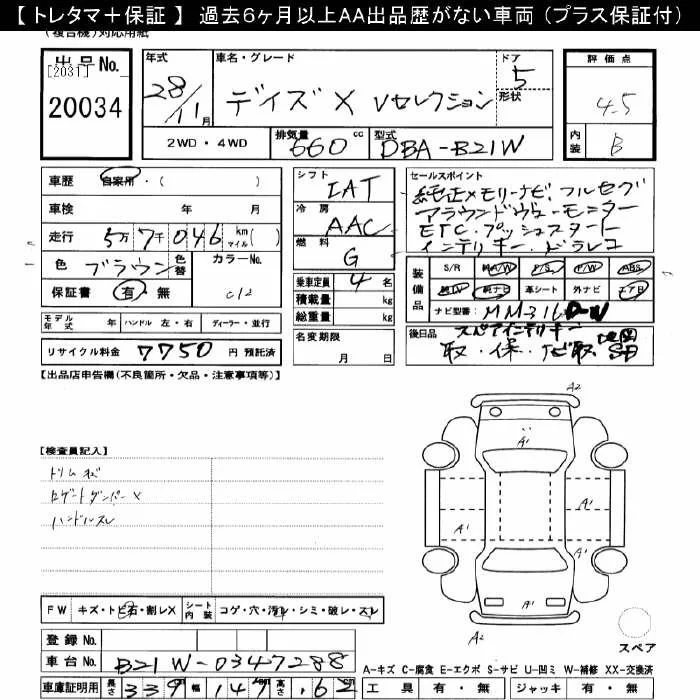 【 トレタマ＋保証 】 過去6ヶ月以上AA出品歴がない車両（プラス保証付）
(複合機)対応用紙
出品No.
[2031]
20034
年式
28/11月
車名・グレード
デイズ X Vセレクション
ドア
5
形状
評価点
4.5
内装
B
2WD・4WD
排気量
660
cc
型式
DBA-B21W
車歴
自家用・(　)
車検 年 月
走行 5万7千046 km マイル( )
色 ブラウン 色替
カラーNo.
C12
保証書 有・無
シフト
IAT
冷房
AAC
燃料
G
乗車定員 4名
積載量 kg
総重量 kg
セールスポイント
純正メモリーナビ．フルセグ
アラウンドヴューモニター
ETC．プッシュスタート
インテリキー．ドラレコ
装備品
S/R A/W P/S P/W ABS
純TV 純ナビ 革シート 外ナビ エアB
ナビ型番: MM316D-W
モデル年式 年 ハンドル 左・右 ディーラー・並行
リサイクル料金 7750 円 預託済
名変期限
月 日
後日品
スペアインテリキー
取・保・ナビ取 地図SD
【出品店申告欄(不良箇所・欠品・注意事項等)】
【検査員記入】
トリムキズ
ロゲートダンパーX
ハンドルスレ
A2
A1
A1
A1
A1
A2
スペア
FW キズ・トビ石・割レX
シート内装 コゲ・穴・汚レ・シミ・破レ・スレ
登録No.
車台No. B21W-0347288
車庫証明用 長さ 339 幅 147 高さ 162
A-キズ C-腐食 E-エクボ S-サビ U-凹ミ W-補修 XX-交換済
工具 有・無 ジャッキ 有・無